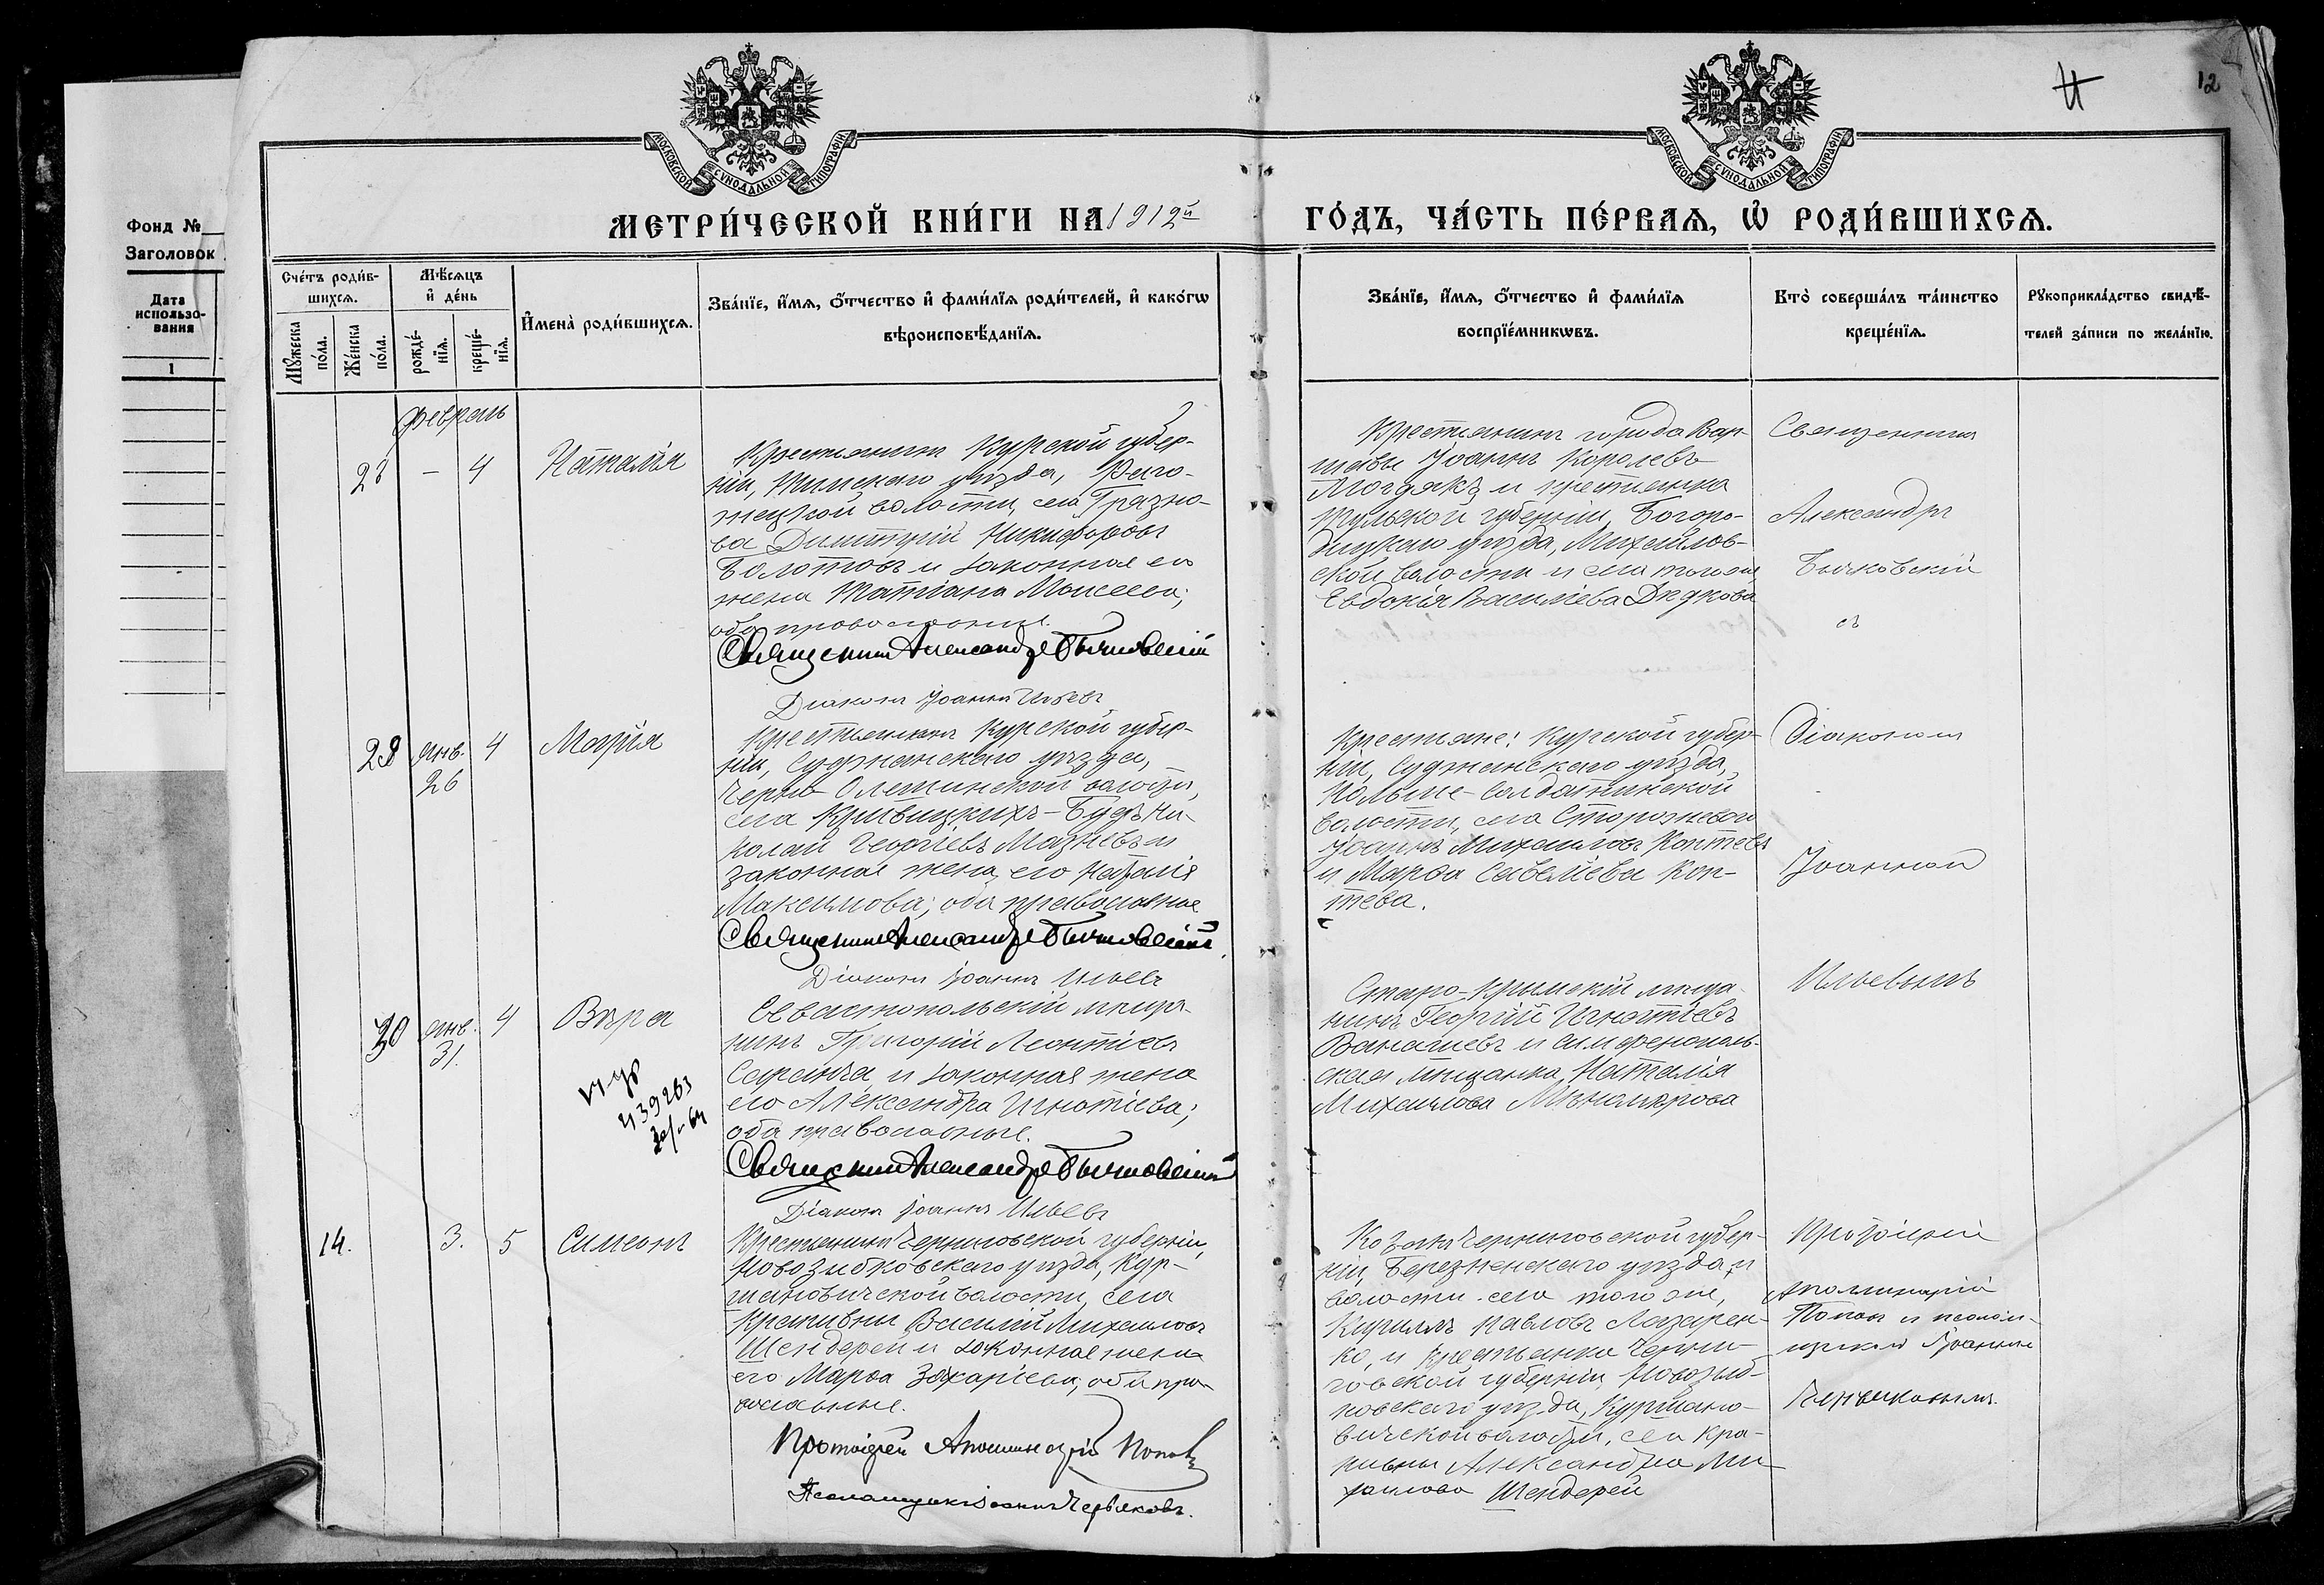 Фонд №
Заголовок
Дата
использо-
вания
1
МОСКОВСКОЙ СѴНОДАЛЬНОЙ ТИПОГРАФІИ
МОСКОВСКОЙ СѴНОДАЛЬНОЙ ТИПОГРАФІИ
12
МЕТРИ́ЧЕСКОЙ КНИ́ГИ НА 1912й
ГО́ДЪ, ЧА́СТЬ ПЕ́РВАѦ, Ѡ҆ РОДИ́ВШИХСѦ.
Сче́тъ роди́в-
шихсѧ.
Мꙋ́жеска
по́ла.
Же́нска
по́ла.
Мѣ́сѧцъ
и҆ де́нь
рожде́-
нїѧ.
креще́-
нїѧ.
И҆мена̀ роди́вшихсѧ.
Зва́нїе, и҆́мѧ, ѻ҆́тчество и҆ фами́лїѧ роди́телей, и҆ како́гѡ
вѣроисповѣ́данїѧ.
Зва́нїе, и҆́мѧ, ѻ҆́тчество и҆ фами́лїѧ
воспрїе́мникѡвъ.
Кто̀ соверша́лъ та́инство
креще́нїѧ.
Рꙋкоприкла́дство свидѣ́-
телей за́писи по жела́нїю.
Февраль
28 – 4 Наталія
Крестьянинъ Курской губер-
ніи, уѣзда,
волости, села Грязно-
ва Димитрій Никифоровъ
Болотовъ и законная его
жена Татіана Моисеева;
оба православные.
Священникъ Александръ Бычковскій
Діаконъ Іоаннъ Ильевъ
Крестьянинъ города Вар-
шавы Іоаннъ Королевъ
и крестьянка
Тульской губерніи, Богоро-
дицкаго уѣзда, Михайлов-
ской волости и села того же
Евдокія Васильева Дядкова
Священникъ
Александръ
Бычковскій
съ
29 янв. 26 4 Марія
Крестьянинъ Курской губер-
ніи, Суджанскаго уѣзда,
Черно-Олешинской волости,
села Кривицкихъ-Будъ Ни-
колай Георгіевъ Мазневъ и
законная жена его Наталія
Максимова; оба православные
Священникъ Александръ Бычковскій.
Діаконъ Іоаннъ Ильевъ
Крестьяне: Курской губер-
ніи, Суджанскаго уѣзда,
Солдатинской
волости, села Сторожеваго
Іоаннъ Михаиловъ Коптевъ
и Марѳа Савеліева Коп-
тева.
Діакономъ
Іоанномъ
Ильевымъ
30 янв. 31. 4 Вѣра
439263
Севастопольскій мѣща-
нинъ Григорій Леонтіевъ
Саранча и законная жена
его Александра Игнатіева;
оба православные.
Священникъ Александръ Бычковскій
Діаконъ Іоаннъ Ильевъ
Старо-Крымскій мѣща-
нинъ Георгій Игнатіевъ
и Симферополь-
ская мѣщанка Наталія
Михаилова
14. 3. 5 Симеонъ
Крестьянинъ Черниговской губерніи,
Новозыбковскаго уѣзда, Кур-
шановической волости, села
Крапивны Василій Михаиловъ
Шендерей и законная жена
его Марѳа Захаріева; оба пра-
вославные.
Протоіерей Аполлинарій Поповъ
Псаломщикъ Іоаннъ Червяковъ.
Козакъ Черниговской губер-
ніи, Березненскаго уѣзда и
волости села того же,
Кириллъ Павловъ Лазарен-
ко, и крестьянка Черни-
говской губерніи, Новозыб-
ковскаго уѣзда, Куршано-
вической волости, села Кра-
пивны Александра Ми-
хаилова Шендерей
Протоіерей
Аполлинарій
Поповъ и псалом-
щикъ Іоанномъ
Червяковымъ.